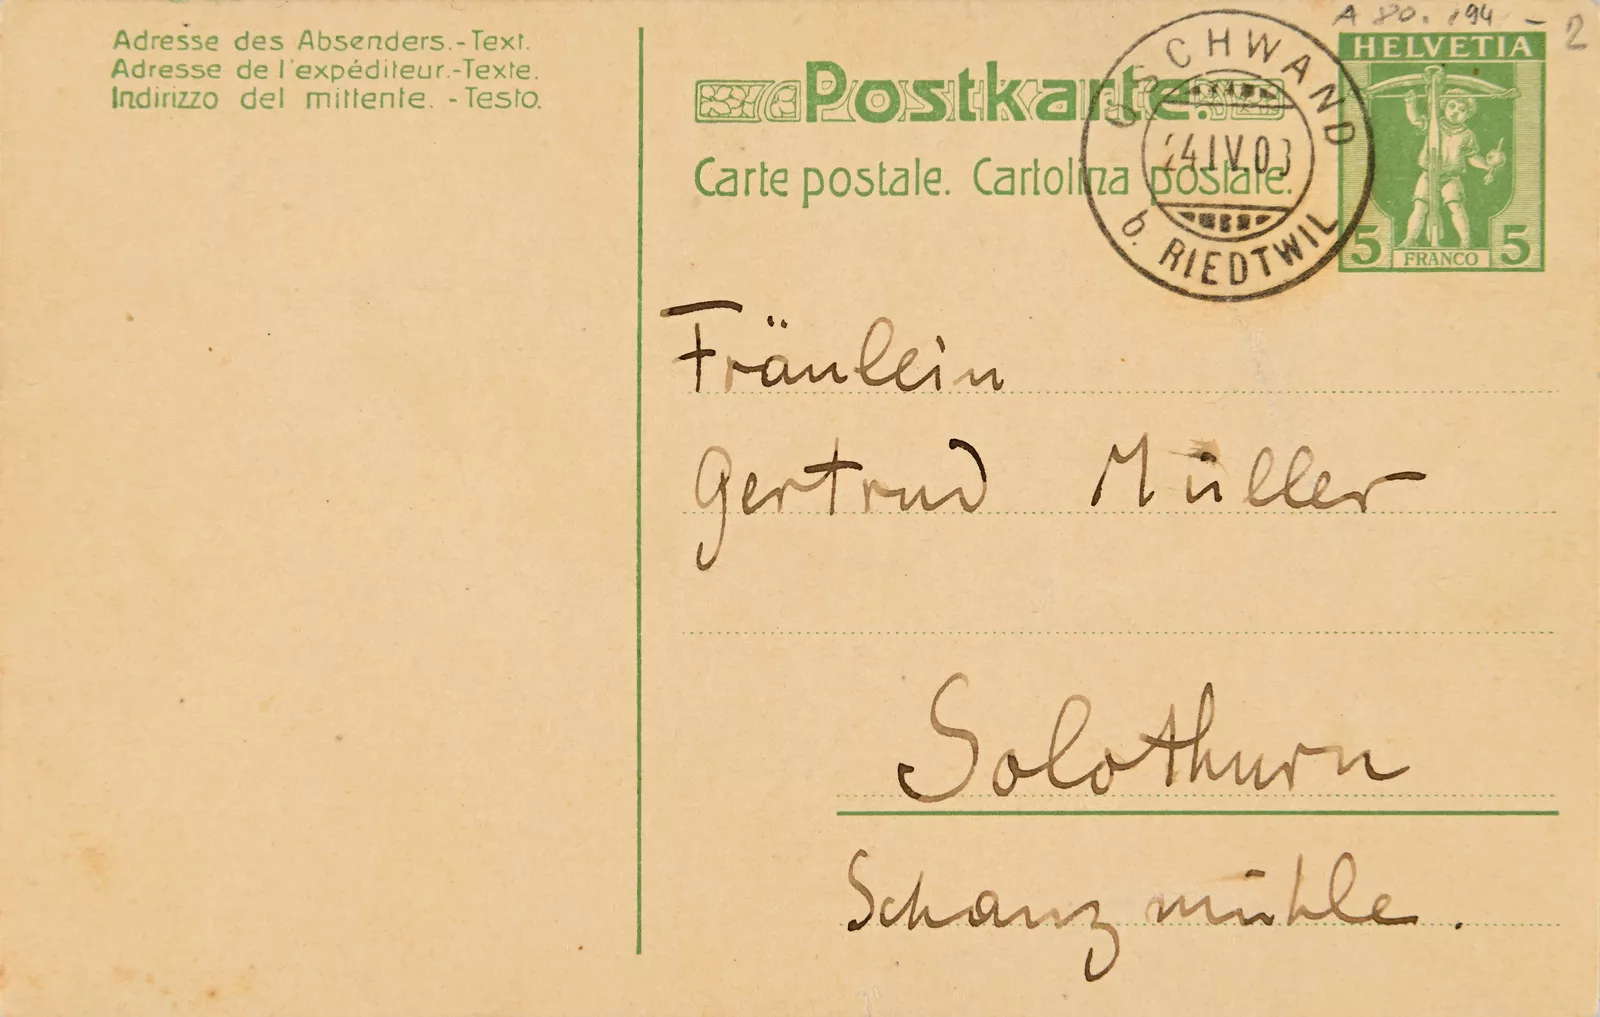 Adresse des Absenders.-Text.
Adresse de l'expéditeur.-Texte.
Indirizzo del mittente. -Testo.
A 80. 194 - 2
HELVETIA
Postkarte.
Carte postale. Cartolina postale.
5 FRANCO 5
OSCHWAND
IV.0
b. RIEDTWIL
Fräulein
Gertrud Müller
Solothurn
Schanzmühle.